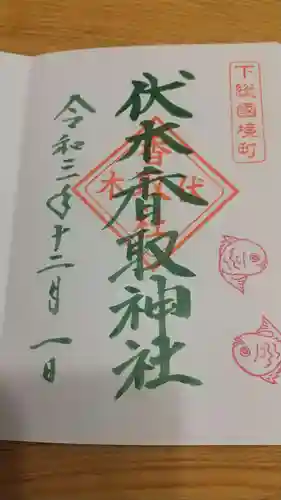 下総國境町
伏木香取神社
伏木
令和三年十二月一日